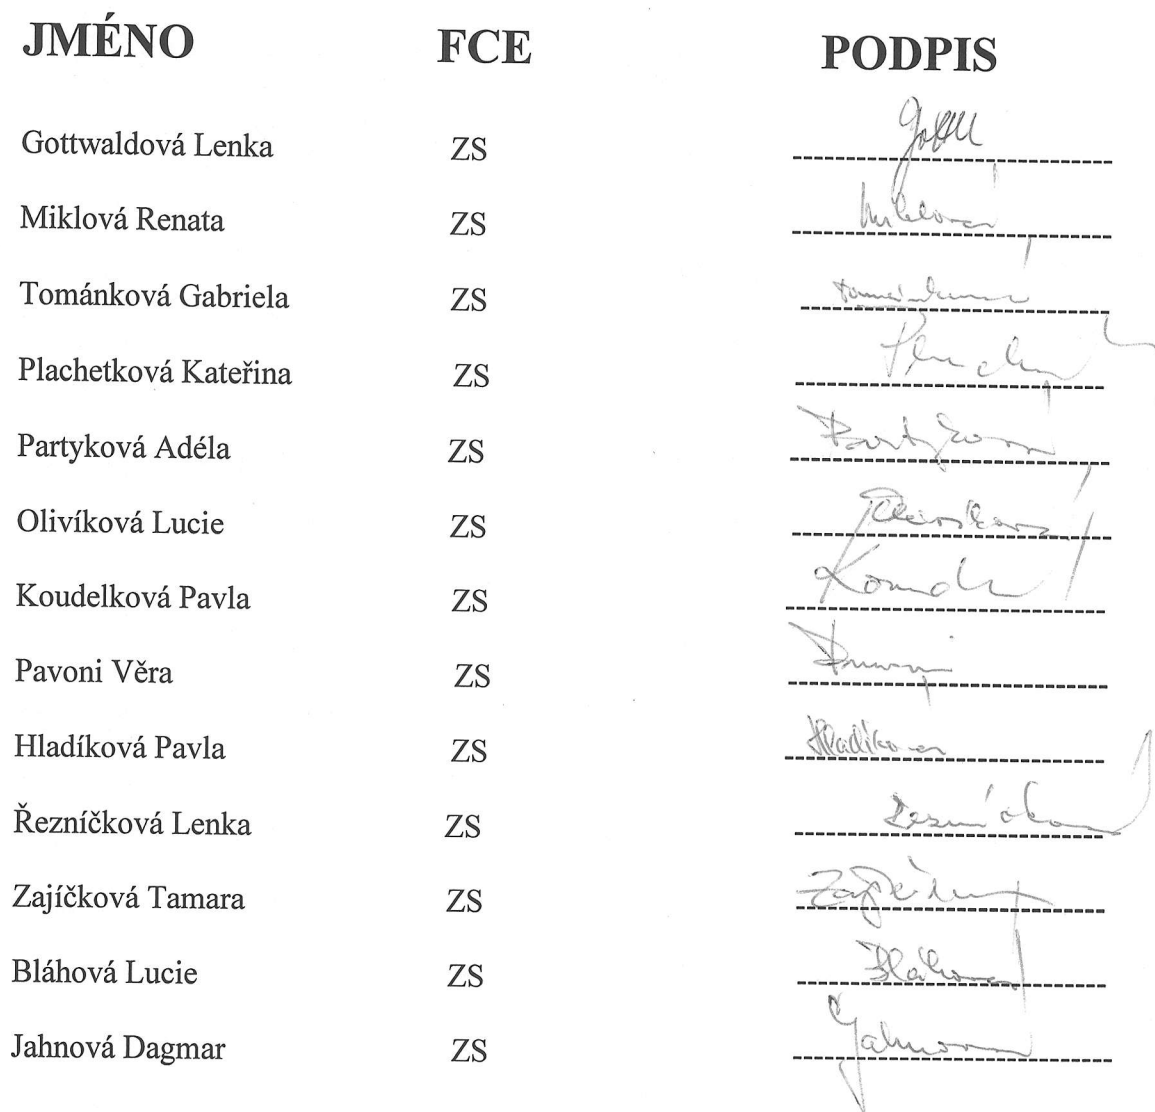 JMÉNO FCE PODPIS
Gottwaldová Lenka ZS
Miklová Renata ZS Miklová
Tománková Gabriela ZS
Plachetková Kateřina ZS
Partyková Adéla ZS
Olivíková Lucie ZS
Koudelková Pavla ZS
Pavoni Věra ZS
Hladíková Pavla ZS Hladíková
Řezníčková Lenka ZS
Zajíčková Tamara ZS
Bláhová Lucie ZS Bláhová
Jahnová Dagmar ZS Jahnová